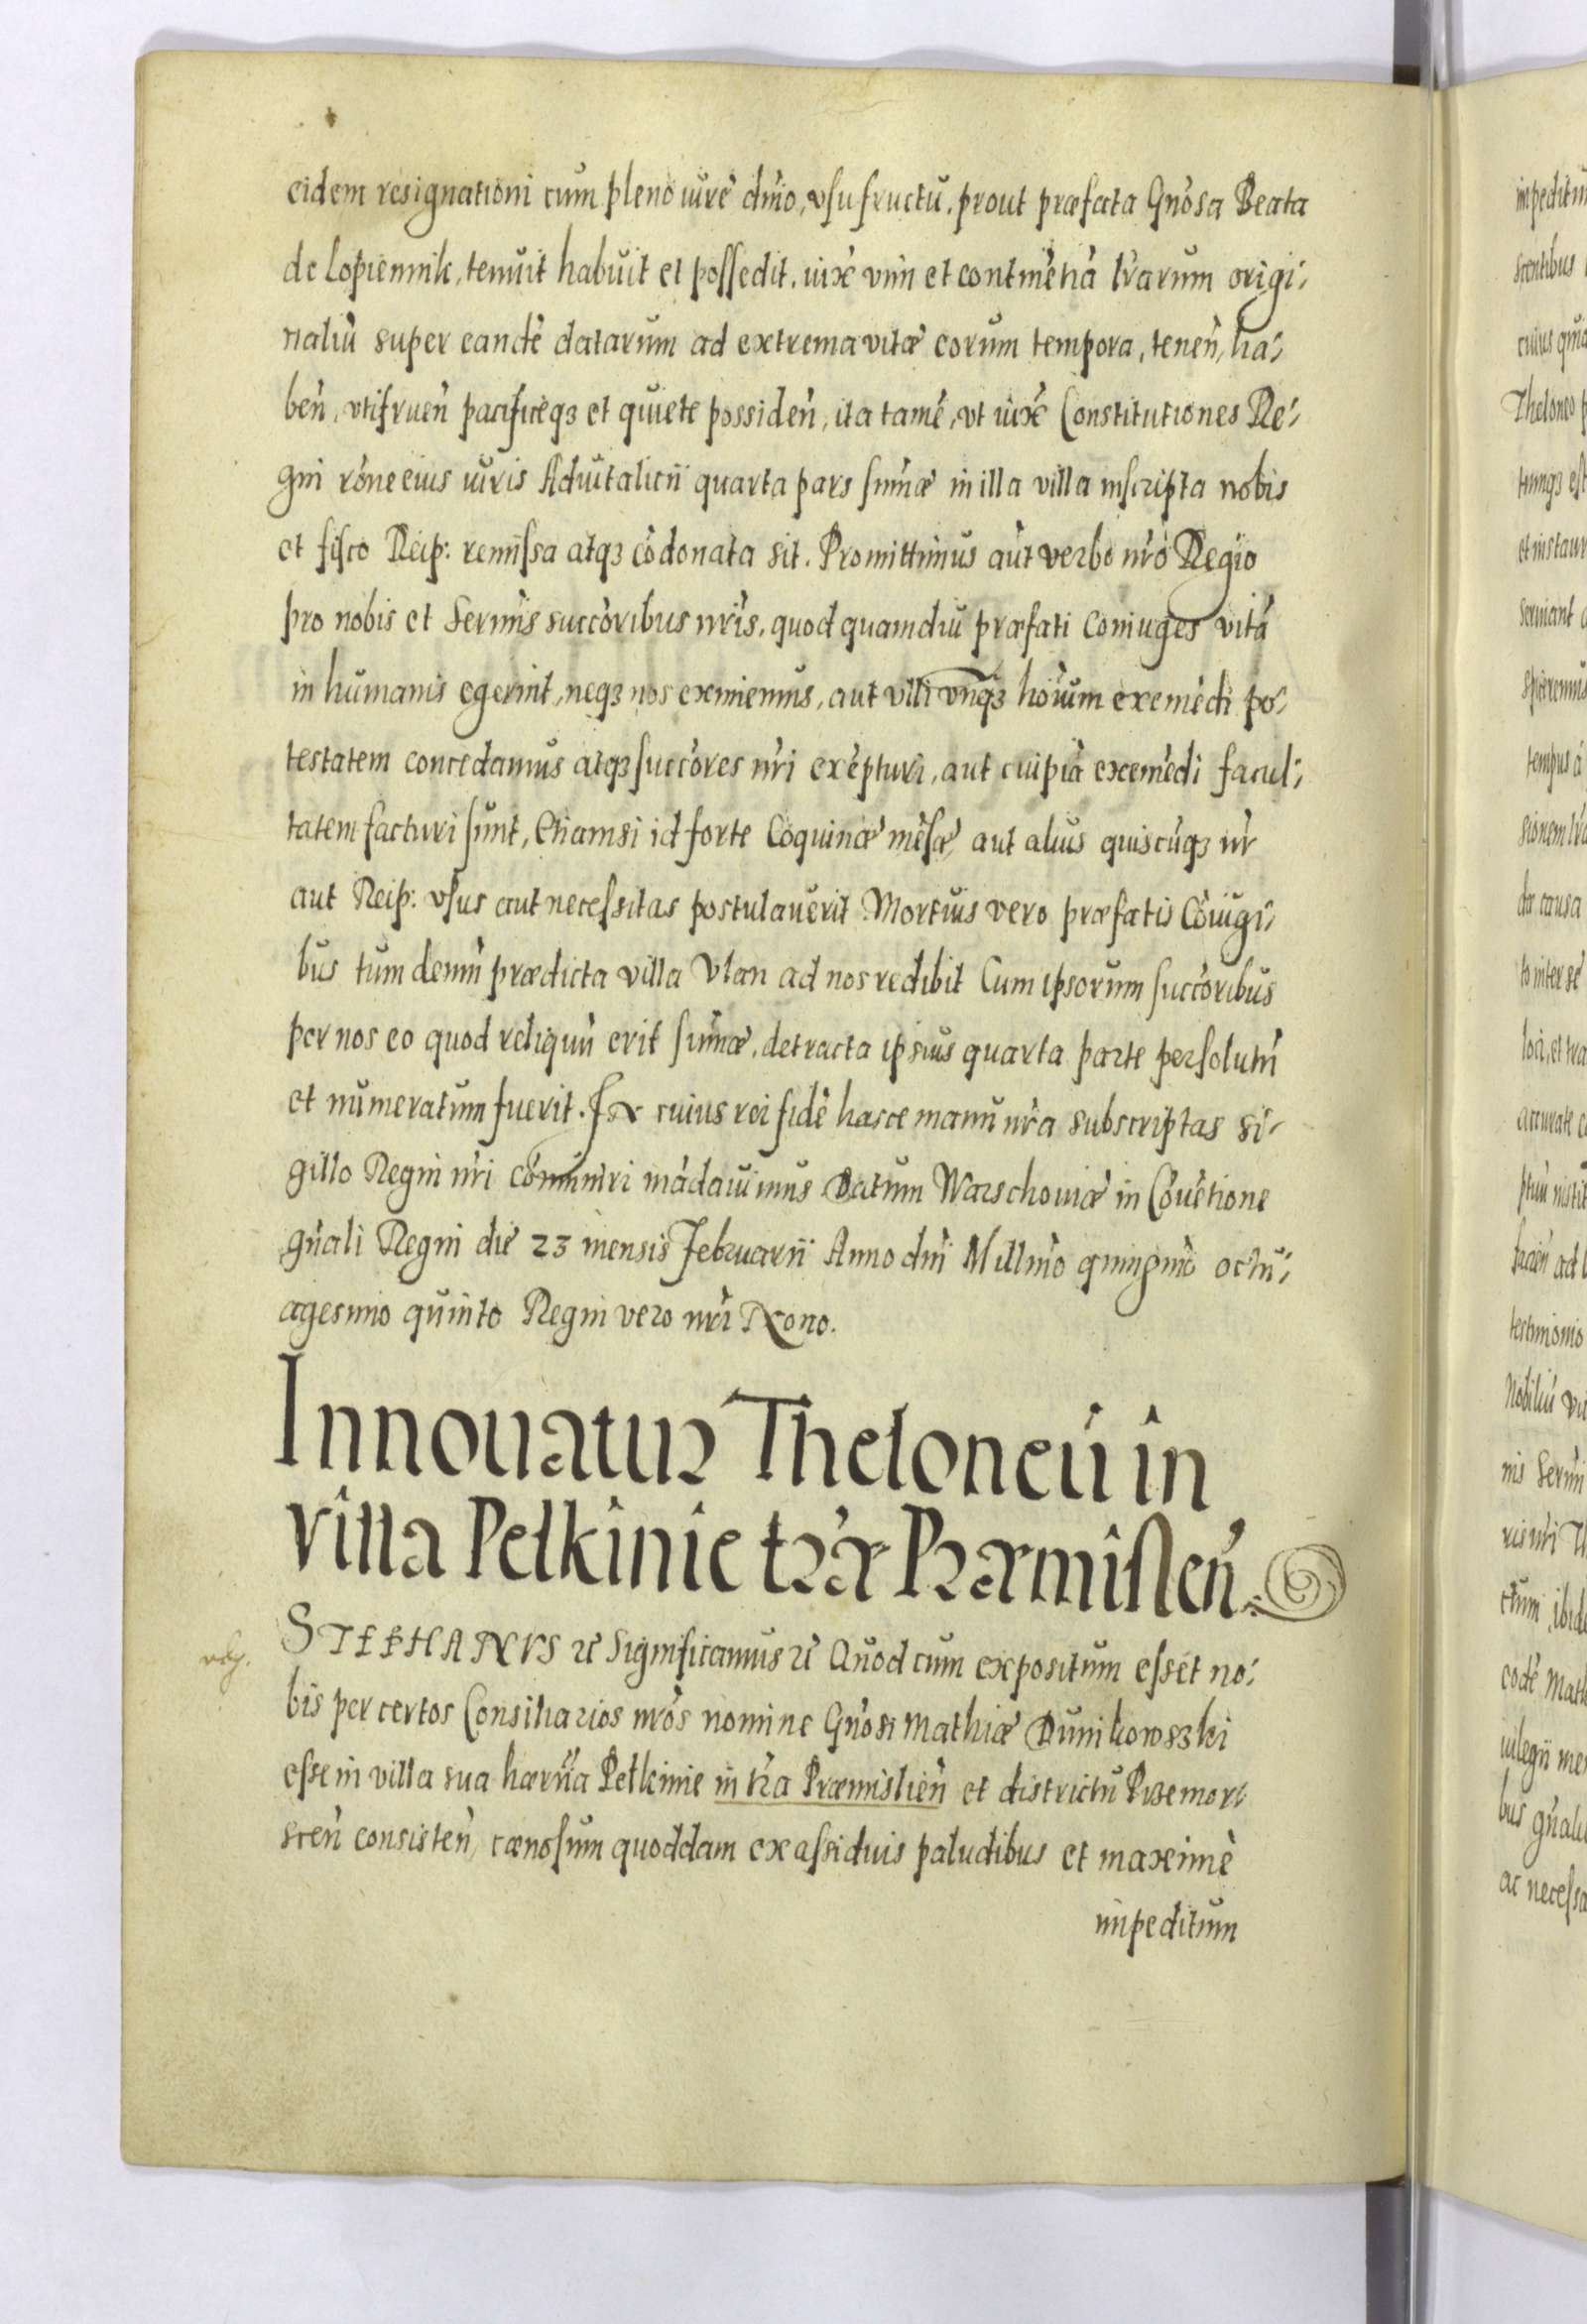 eidem resignationi cum pleno iure dn̄io, vsufructu, prout præfata Gn̄osa Beata
de Lopiennik, tenuit habuit et possedit, iux̄ vim et contine̅tia̅ lr̄arum origi-
naliu̅ super eande̅ datarum ad extrema vitæ eorum tempora, tenen̄, ha-
ben̄, vtifruen̄ pacificeqꝫ et quiete possiden̄, ita tame̅, vt iux̄ Constitutiones Re-
gni ro̅ne eius iuris Aduitalicii quarta pars sum̄æ in illa villa inscripta nobis
et fisco Reip: remissa atqꝫ co̅donata sit. Promittimus au̅t verbo nr̄o Regio
pro nobis et Sermis̄ succo̅ribus nr̄is, quod quamdiu præfati Coniuges vita̅
in humanis egerint, neqꝫ nos eximemus, aut vlli vnq̄ꝫ ho̅ium exime̅di po-
testatem concedamus atqꝫ succo̅res nr̄i exe̅pturi, aut cuipia̅ exime̅di facul-
tatem facturi sunt, Etiamsi id forte Coquinæ me̅sæ, aut alius quiscu̅qꝫ nr̄
aut Reip: vsus aut necessitas postulauerit Mortuis vero præfatis Co̅iugi-
bus tum demu̅ prædicta villa Vlan ad nos redibit Cum ipsorum succo̅ribus
per nos eo quod reliquu̅ erit sum̄æ, detracta ipsius quarta parte persolutu̅
et numeratum fuerit. In cuius rei fide̅ hasce manu nr̄a subscriptas si-
gillo Regni nr̄i co̅muniri ma̅dauimus Datum Warschouiæ in Co̅ue̅tione
gn̄ali Regni die 23 mensis Februarii Anno dn̄i Mill̄mo quinḡmo octu-
agesimo quinto Regni vero nr̄i Nono.
Innouatur Theloneu̅ in
villa Pelkinie tr̄æ Præmislen̄.
reḡ. STEPHANVS ꝛc̄ Significamus ꝛc̄ Quod cum expositum esset no-
bis per certos Consiliarios nr̄os nomine Gn̄osi Mathiæ Dunikowsski
esse in villa sua hær̄ria Pelkinie in tr̄a Præmislien̄ et districtu Przemor-
scen̄ consisten̄, cænosum quoddam ex assiduis paludibus et maximè
impeditum